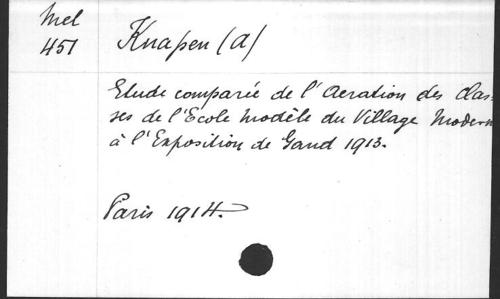 Mel
451
Knapen (A)
Etude comparée de l'Aeration des Clas-
ses de l'Ecole Modèle du Village Modern
à l'Exposition de Gand 1913.
Paris 1914.